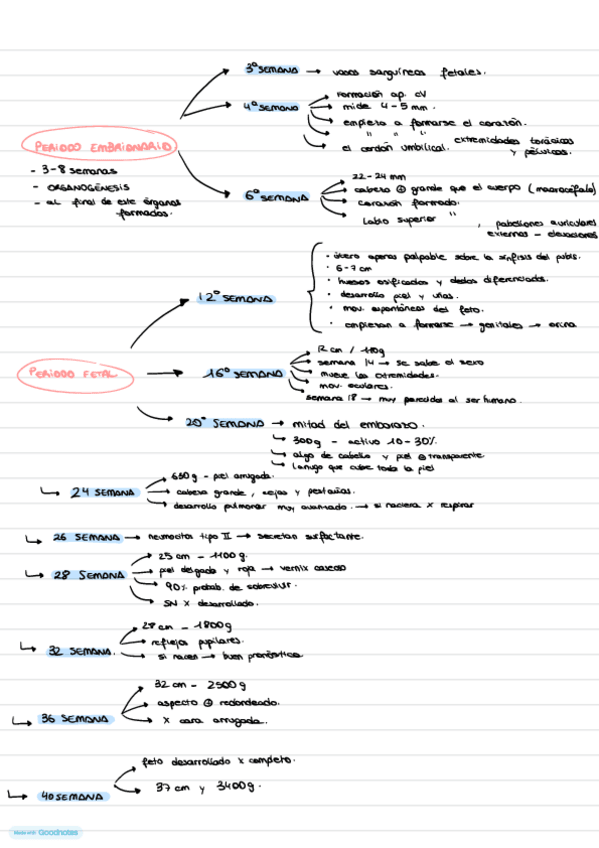 3º SEMANA → vasos sanguíneos fetales.
4º SEMANA
Formación ap. CV
mide 4-5 mm.
empieza a formarse el corazón.
" " "
el cordón umbilical. extremidades torácicas
y pélvicas.
PERIODO EMBRIONARIO
- 3-8 semanas
- ORGANOGÉNESIS
- al final de este órganos
formados.
6º SEMANA
22-24 mm
cabeza ⊕ grande que el cuerpo (macrocéfalo)
corazón formado.
Labio superior " , pabellones auriculares
externos - elevaciones
12º SEMANA
· útero apenas palpable sobre la sínfisis del pubis.
· 6-7 cm
· huesos osificados y dedos diferenciados.
· desarrollo piel y uñas.
· mov. espontáneos del feto.
· empiezan a formarse → genitales → orina
PERIODO FETAL
16º SEMANA
12 cm / 110g
semana 14 → se sabe el sexo
mueve las extremidades.
mov. oculares.
semana 18 → muy parecidos al ser humano.
20º SEMANA → mitad del embarazo.
300g - activo 10-30%.
algo de cabello y piel ⊖ transparente
lanugo que cubre toda la piel
24 SEMANA
630g - piel arrugada.
cabeza grande, cejas y pestañas.
desarrollo pulmonar muy avanzado. → si naciera x respirar
26 SEMANA → neumocitos tipo II → secretan surfactante.
28 SEMANA
25 cm - 1100g.
piel delgada y roja → vernix caseosa
90% probab. de sobrevivir.
SN x desarrollado.
32 SEMANA.
28 cm - 1800g
reflejos pupilares.
si naces → buen pronóstico
36 SEMANA
32 cm - 2500g
aspecto ⊕ redondeado.
x cara arrugada.
40 SEMANA
feto desarrollado x completo.
37 cm y 3400g.
Made with Goodnotes